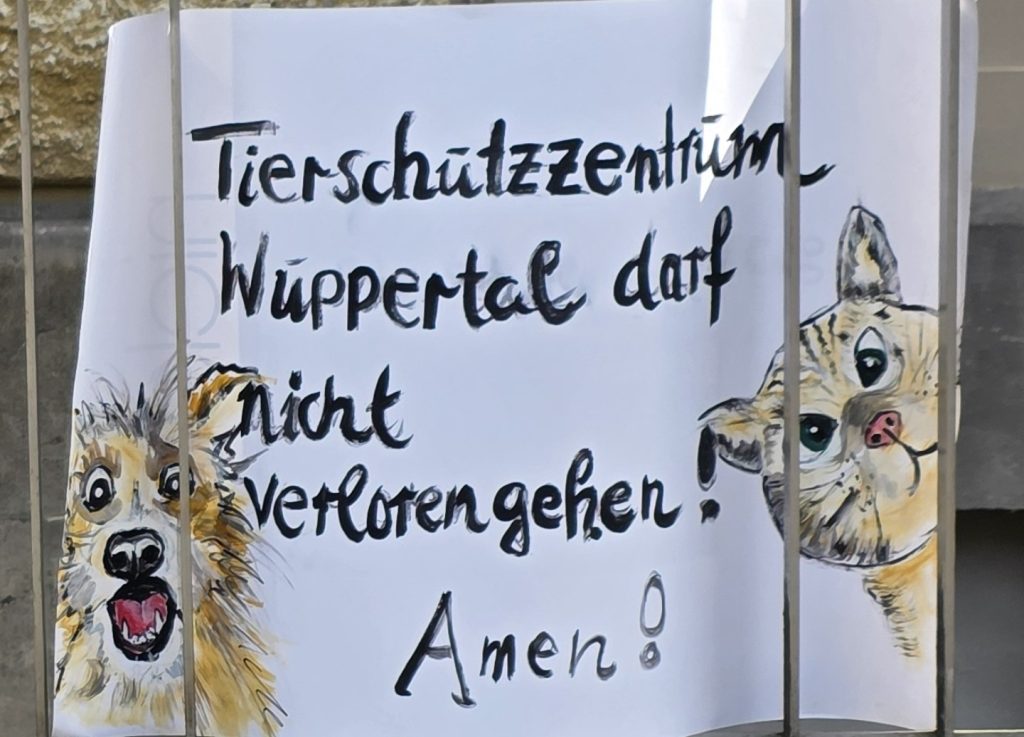 Tierschützzentrum
Wuppertal darf
nicht
verloren gehen!
Amen!